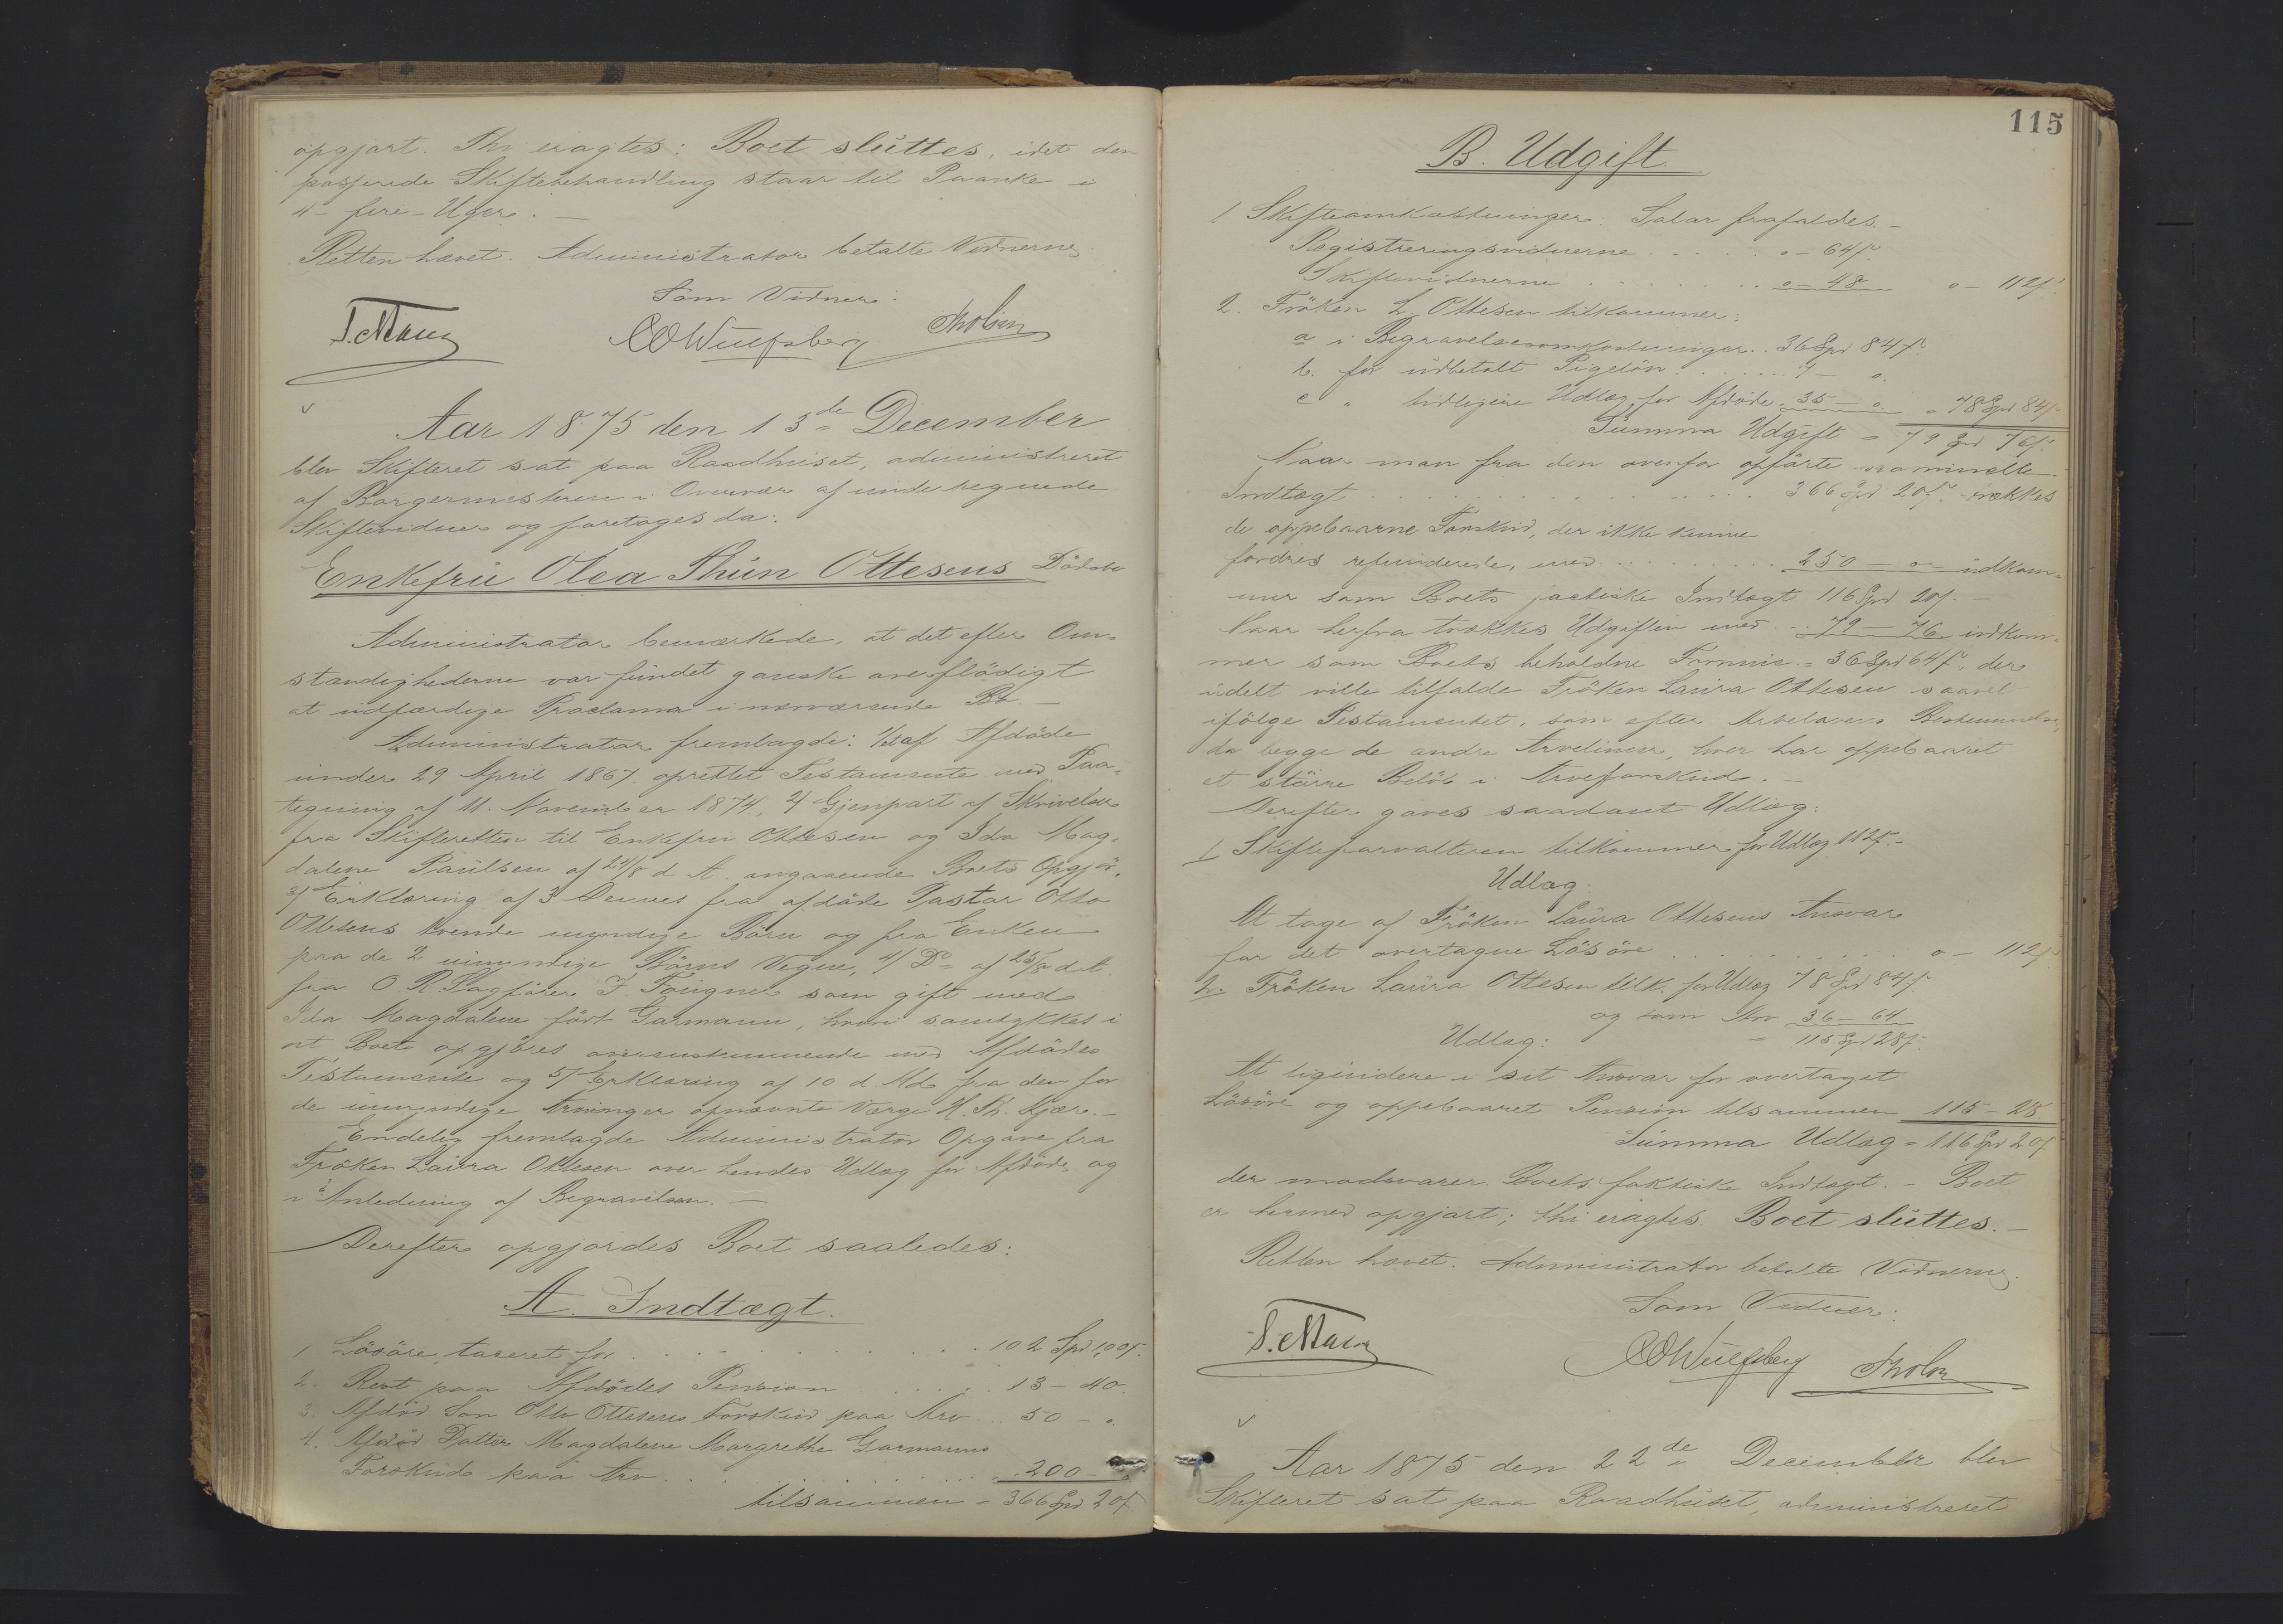 opgjort. Thi eragtes: Boet slüttes, idet den
passerede Skiftebehandling staar til Paanke i
4 - fire - Uger. -
Retten hævet. Administrator betalte Vidnerne.
Som Vidner:
COWulfsberg
Aar 1875 den 13de December
blev Skifteret sat paa Raadhüset, administreret
af Borgermesteren i Overvær af undertegnede
Skiftevidner og foretoges da:
Enkefrü Olea Thün Ottesens Dödsbo
Administrator bemærkede, at det efter Om-
stændighederne var fündet ganske overflödigt
at udfærdige Proclama i nærværende Bo. -
Administrator fremlagde: 1/ det af Afdöde
ünder 29 April 1867 oprettet Testamente med Paa-
tegning af 11. November 1874, 2/ Gjenpart af Skrivelse
fra Skifteretten til Enkefrü Ottesen og Ida Mag-
dalene Paülsen af 24/8 d. A. angaaende Boets Opgjör,
3/ Erklæring af 3 Dennes fra afdöde Pastor Otto
Ottesens tvende myndige Börn og fra Enken
paa de 2 ümyndige Börns Vegne, 4/ Do af 25/8 d. A.
fra O. R. Sagförer J. Fougner som gift med
Ida Magdalene födt Garmann, hvori samtykkes i
at Boet opgjöres overensstemmende med Afdödes
Testamente og 5/ Erklæring af 10 d. Md. fra den for
de ümyndige Arvinger opnævnte Værge H. Th. Kjær. -
Endelig fremlagde Administrator Opgave fra
Fröken Laüra Ottesen over hendes Udlæg for Afdöde og
i Anledning af Begravelsen. -
Derefter opgjordes Boet saaledes:
A. Indtægt.
1 Lösöre taxeret for . . . 102 Spd 100 f.
2. Rest paa Afdödes Pension . . . 13 - 40.
3. Afdöd Sön Otto Ottesens Forskud paa Arv . . 50 - o.
4. Afdöd Datter Magdalene Margrethe Garmanns
Forskud paa Arv . . . 200 -
tilsammen = 366 Spd 20 f
115
B. Udgift.
1 Skifteomkostninger: Salar frafaldes. -
Registreringsvidnerne . . . o - 64 f.
Skiftevidnerne . . . o - 48 o - 112 f.
2. Fröken L. Ottesen tilkommer:
a i Begravelsesomkostninger . . 36 Spd 84 f.
b. for üdbetalt Pigelön . . . 7 - o.
c " tidligere Udlæg for Afdöde . 35 - o. = 78 Spd 84 f
Sümma Udgift = 79 Spd 76 f.
Naar man fra den ovenfor opförte nominelle
Indtægt . . . 366 Spd 20 f. trækkes
de oppebaarne Forskud, der ikke künne
fordres refünderede, med . . . 250 - o - üdkom-
mer som Boets factiske Indtægt 116 Spd 20 f. -
Naar herfra trækkes Udgiften med . . 79 - 76. üdkom-
mer som Boets beholdne Formue = 36 Spd 64 f. der
üdelt ville tilfalde Fröken Laüra Ottesen saavel
ifölge Testamentet, som efter Arvelovens Bestemmelse,
da begge de andre Arvelinier, hver har oppebaaret
et större Belöb i Arveforskud. -
Derefter gaves saadant Udlæg:
1 Skifteforvalteren tilkommer for Udlæg 112 f. -
Udlæg.
At tage af Fröken Laüra Ottesens Ansvar
for det overtagne Lösöre . . . o - 112 f
2. Fröken Laüra Ottesen tilk. for Udlæg 78 Spd 84 f.
og som Arv 36 - 64
Udlæg: = 115 Spd 28 f.
At liqvidere i sit Ansvar for overtaget
Lösöre og oppebaaret Pension tilsammen 115 - 28
Sümma Udlæg = 116 Spd 20 f
der modsvarer Boets faktiske Indtægt. - Boet
er hermed opgjort; thi eragtes. Boet slüttes. -
Retten hævet. Administrator betalte Vidnerne.
Som Vidner:
COWulfsberg
Aar 1875 den 22de December blev
Skifteret sat paa Raadhüset, administreret